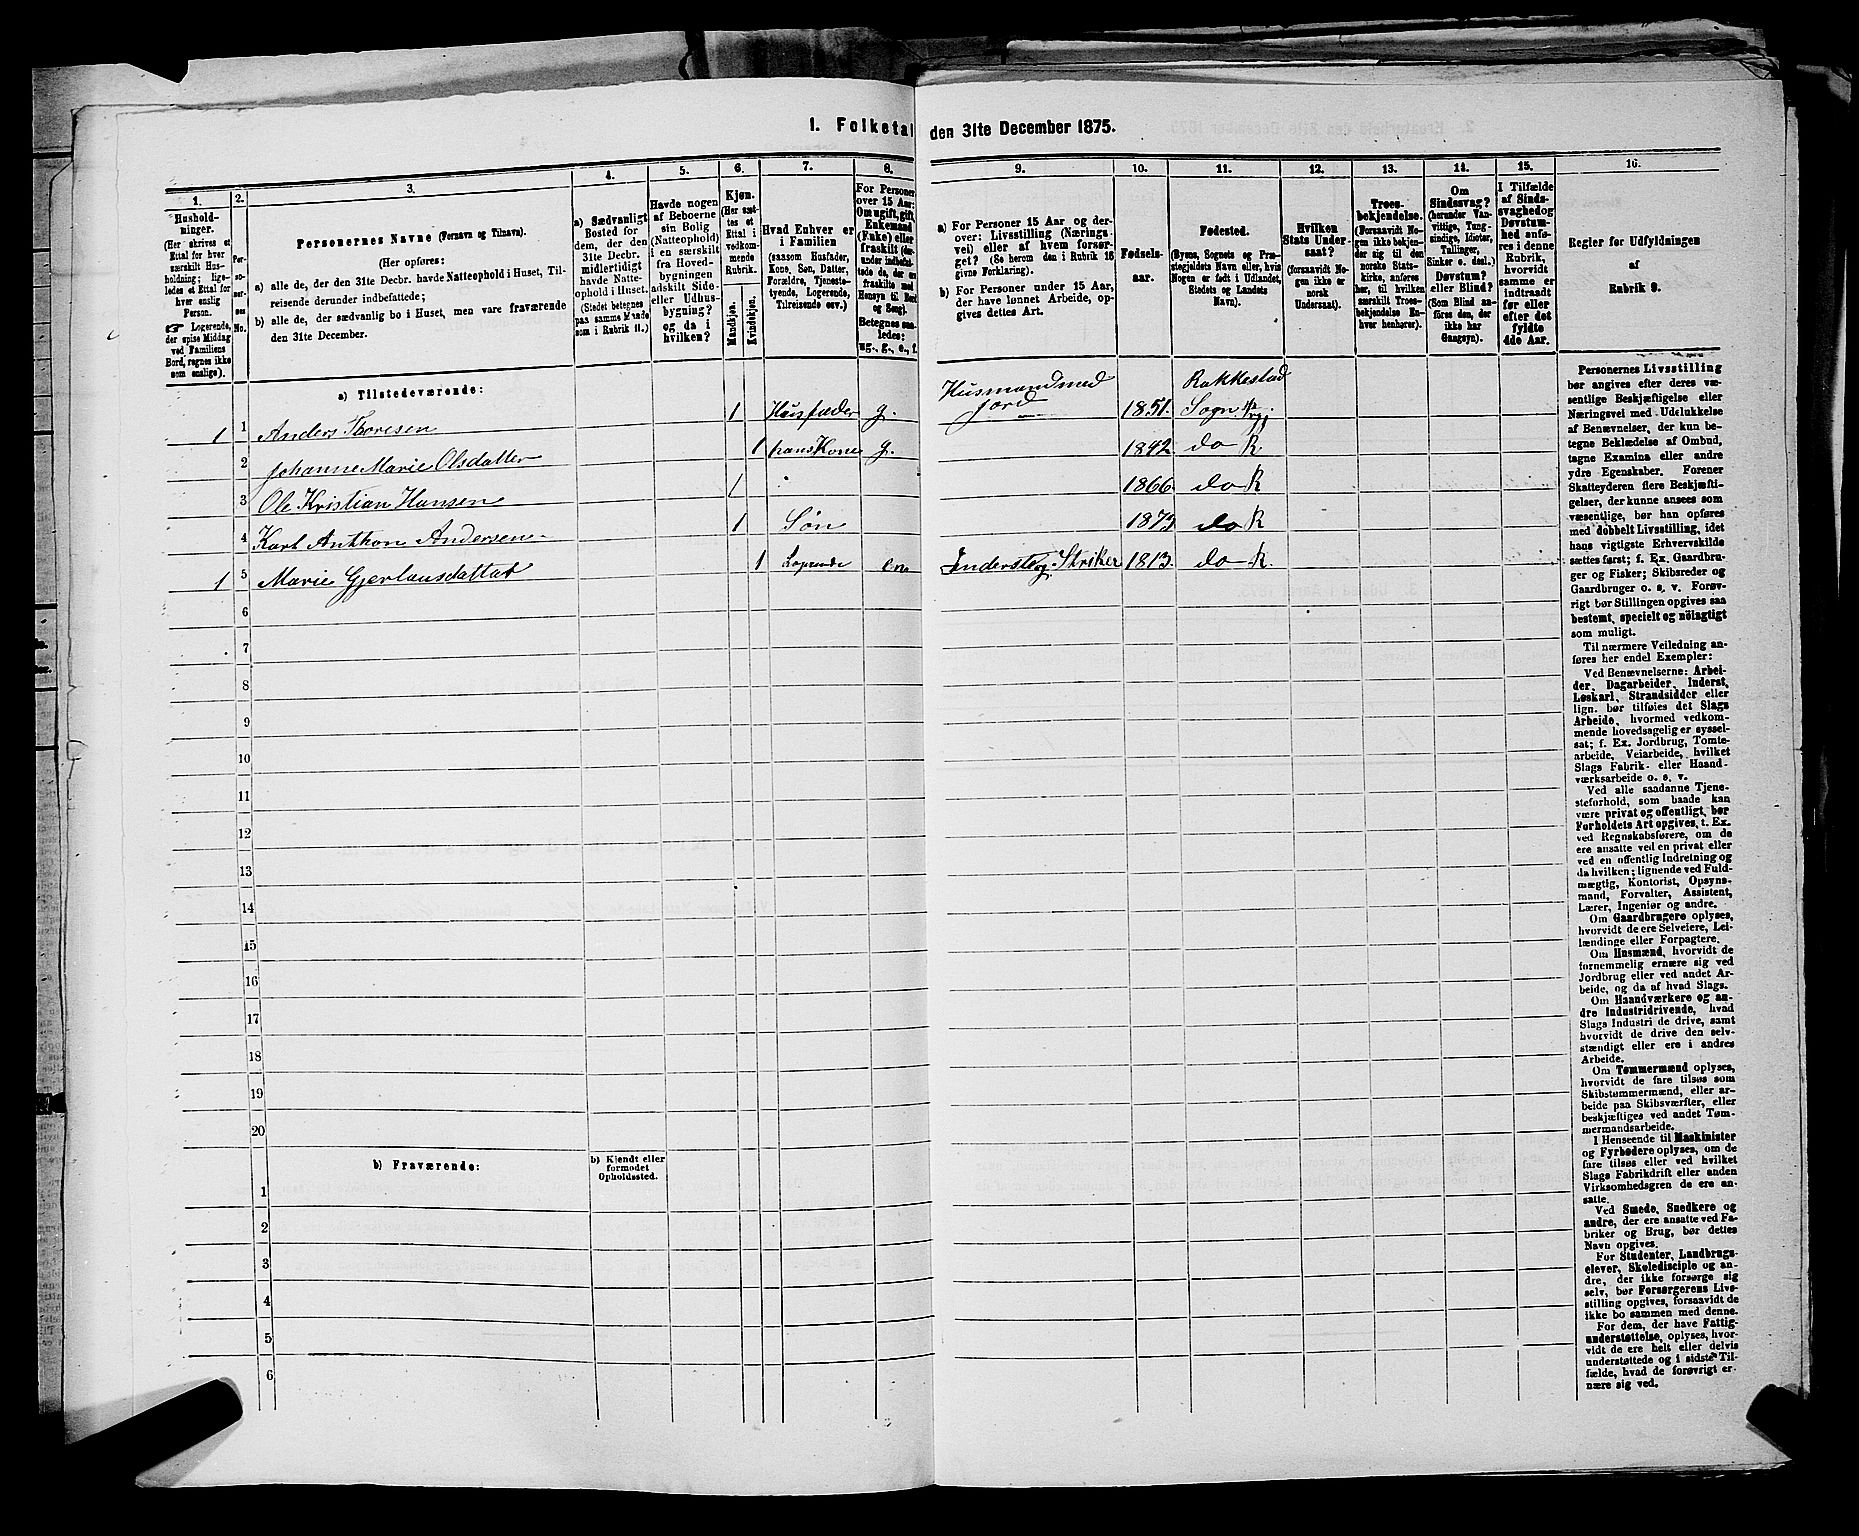 1. Folketal den 31te December 1875.
1.
Hushold-
ninger.
(Her skrives et
Ettal for hver
særskilt Hus-
holdning; lige-
ledes et Ettal for
hver enslig
Person.
Logerende,
der spise Middag
ved Familiens
Bord, regnes ikke
som enslige).
2.
Per-
so-
ner-
nes
No.
3.
Personernes Navne (Fornavn og Tilnavn).
(Her opføres:
a) alle de, der den 31te Decbr. havde Natteophold i Huset, Til-
reisende derunder indbefattede;
b) alle de, der sædvanlig bo i Huset, men vare fraværende
den 31te December.
4.
a) Sædvanligt
Bosted for
dem, der den
31te Decbr.
midlertidigt
havde Natte-
ophold i Huset.
(Stedet betegnes
paa samme Maade
som i Rubrik 11.)
5.
Havde nogen
af Beboerne
sin Bolig
(Natteophold)
i en særskilt
fra Hoved-
bygningen
adskilt Side-
eller Udhus-
bygning?
og da i
hvilken?
6.
Kjøn.
(Her sæt-
tes et
Ettal i
vedkom-
mende
Rubrik.
Mandkjøn.
Kvindekjøn.
7.
Hvad Enhver er
i Familien
(saasom Husfader,
Kone, Søn, Datter,
Forældre, Tjeneste-
tyende, Logerende,
Tilreisende osv.)
8.
For Personer
over 15 Aar:
Om ugift, gift,
Enkemand
(Enke) eller
fraskilt
Betegnes saa-
ledes:
ug., g., e., f.
9.
a) For Personer 15 Aar og der-
over: Livsstilling (Nærings-
vei) eller af hvem forsør-
get? (Se herom den i Rubrik 16
givne Forklaring).
b) For Personer under 15 Aar,
der have lønnet Arbeide, op-
gives dettes Art.
10.
Fødsels-
aar.
11.
Fødested.
(Byens, Sognets og Præ-
stegjeldets Navn eller, hvis
Nogen er født i Udlandet,
Stedets og Landets
Navn).
12.
Hvilken
Stats Under-
saat?
(forsaavidt No-
gen ikke er
norsk
Undersaat).
13.
Troes-
bekjendelse.
(Forsaavidt No-
gen ikke bekjen-
der sig til den
norske Stats-
kirke, anføres
her, til hvilken
særskilt Troes-
bekjendelse En-
hver henhører).
14.
Om
Sindssvag?
(herunder Van-
vittige, Tung-
sindige, Idioter,
Tullinger,
Sinker o. desl.).
Døvstum?
eller Blind?
(Som Blind an-
føres den, der
ikke har
Gangsyn).
15.
I Tilfælde
af Sinds-
svaghed og
Døvstum-
hed anfø-
res i denne
Rubrik,
hvorvidt
samme er
indtraadt
før eller
efter det
fyldte
4de Aar.
16.
Regler for Udfyldningen
af
Rubrik 9.
a) Tilstedeværende:
1 1 Anders Thoresen 1 Husfader g. Husmand med jord 1851. Rakkestad Sogn
2 Johanne Marie Olsdatter 1 hans Kone g. 1842 do R
3 Ole Kristian Hansen 1 1866 do R
4 Karl Anthon Andersen 1 Søn 1873 do R
1 5 Marie 1 en 1813. do R.
6
7
8
9
10
11
12
13
14
15
16
17
18
19
20
b) Fraværende:
b) Kjendt eller
formodet
Opholdssted.
1
2
3
4
5
6
Personernes Livsstilling
bør angives efter deres væ-
sentlige Beskjæftigelse eller
Næringsvei med Udelukkelse
af Benævnelser, der kun be-
tegne Beklædelse af Ombud,
tagne Examina eller andre
ydre Egenskaber. Forener
Skatteyderen flere Beskjæfti-
gelser, der kunne ansees som
væsentlige, bør han opføres
med dobbelt Livsstilling, idet
hans vigtigste Erhvervskilde
sættes først; f. Ex. Gaardbru-
ger og Fisker; Skibsreder og
Gaardbruger o. s. v. Forøv-
rigt bør Stillingen opgives saa
bestemt, specielt og nöiagtigt
som muligt.
Til nærmere Veiledning an-
føres her endel Exempler:
Ved Benævnelserne: Arbei-
der, Dagarbeider, Inderst,
Løskarl, Strandsidder eller
lign. bør tilføies det Slags
Arbeide, hvormed vedkom-
mende hovedsagelig er syssel-
sat; f. Ex. Jordbrug, Tomte-
arbeide, Veiarbeide, hvilket
Slags Fabrik- eller Haand-
værksarbeide o. s. v.
Ved alle saadanne Tjene-
steforhold, som baade kan
være privat og offentligt, bør
Forholdets Art opgives, t. Ex.
ved Regnskabsførere, om de
ere ansatte ved en privat eller
ved en offentlig Indretning og
da hvilken; lignende ved Fuld-
mægtig, Kontorist, Opsyns-
mand, Forvalter, Assistent,
Lærer, Ingeniør og andre.
Om Gaardbrugere oplyses,
hvorvidt de ere Selveiere, Lei-
lændinge eller Forpagtere.
Om Husmænd, hvorvidt de
fornemmelig ernære sig ved
Jordbrug eller ved andet Ar-
beide, og da af hvad Slags.
Om Haandværkere og an-
dre Industridrivende, hvad
Slags Industri de drive, samt
hvorvidt de drive den selv-
stændigt eller ere i andres
Arbeide.
Om Tømmermænd oplyses,
hvorvidt de fare tilsøs som
Skibstømmermænd, eller ar-
beide paa Skibsværfter, eller
beskjæftiges ved andet Tøm-
mermandsarbeide.
I Henseende til Maskinister
og Fyrbødere oplyses, om de
fare tilsøs eller ved hvilket
Slags Fabrikdrift eller anden
Virksomhedsgren de ere an-
satte.
Ved Smede, Snedkere og
andre, der ere ansatte ved Fa-
briker og Brug, bør dettes
Navn opgives.
For Studenter, Landbrugs-
elever, Skoledisciple og an-
dre, der ikke forsørge sig
selv, bør Forsørgerens Livs-
stilling opgives, forsaavidt de
ikke bo sammen med denne.
For dem, der have Fattig-
understøttelse, oplyses, hvor-
vidt de ere helt eller delvis
understøttede og i sidste Til-
fælde, hvad de forøvrigt er-
nære sig ved.